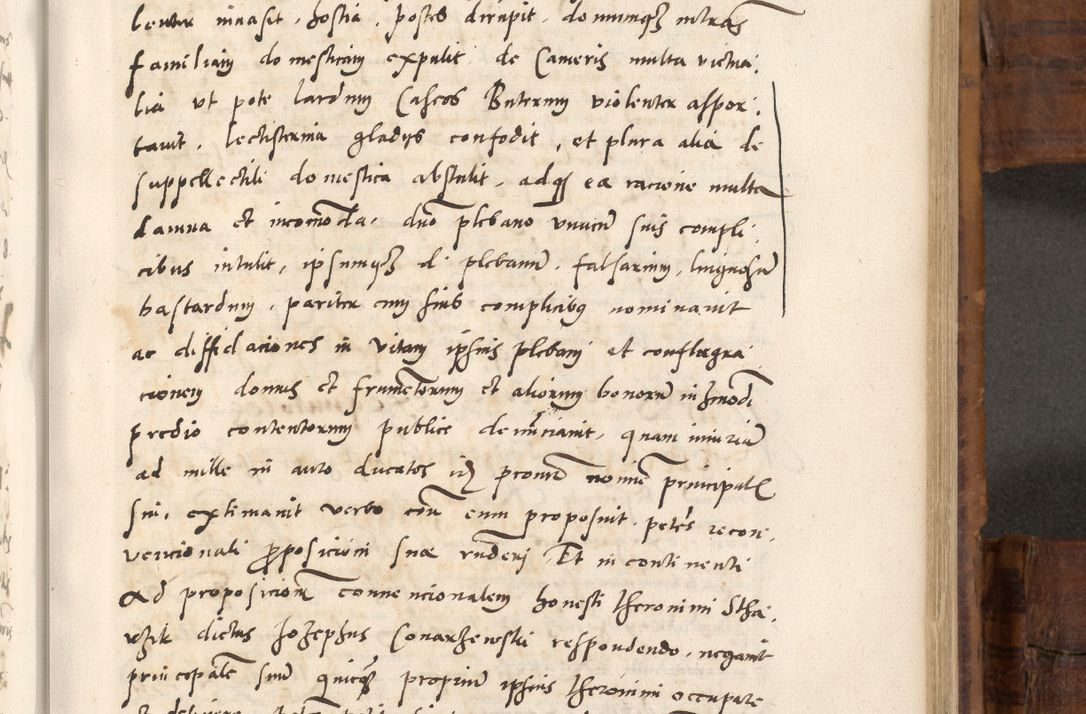 inuasit, hostia, postes dirupit, domumqȝ
familiam domesticam expulit, de Cameris multa victua,
lia ut pote lardum Caseos Buterum violenter aspor,
tauit, lectisternia gladys confodit, et plura alia de
suppellectili domestica abstulit, adqȝ ea racione multa
damna et incomoda, dno plebano unacum suis compli,
cibus intulit, ipsumqȝ d plebanu, falsarium,
bastardum, pariter cum suis complicibus nominauit
ac diffidaciones in vitam ipsius plebani et conflagra,
cionem domus et frumetorum et aliorum bonoru in hmodi
predio contentorum publice denunciauit, quam iniuriam
ad mille in auro ducatos principalis
sui, extimauit verbo eum proposuit, petes recon,
uencionali proposicioni sue Et in continenti
Ad proposicionem conuencionalem honesti Iheronimi Stha,
dictus Iozephus Conarzewski respondendo, negauit
principale suu proprium ipsius Iheronimi occupare